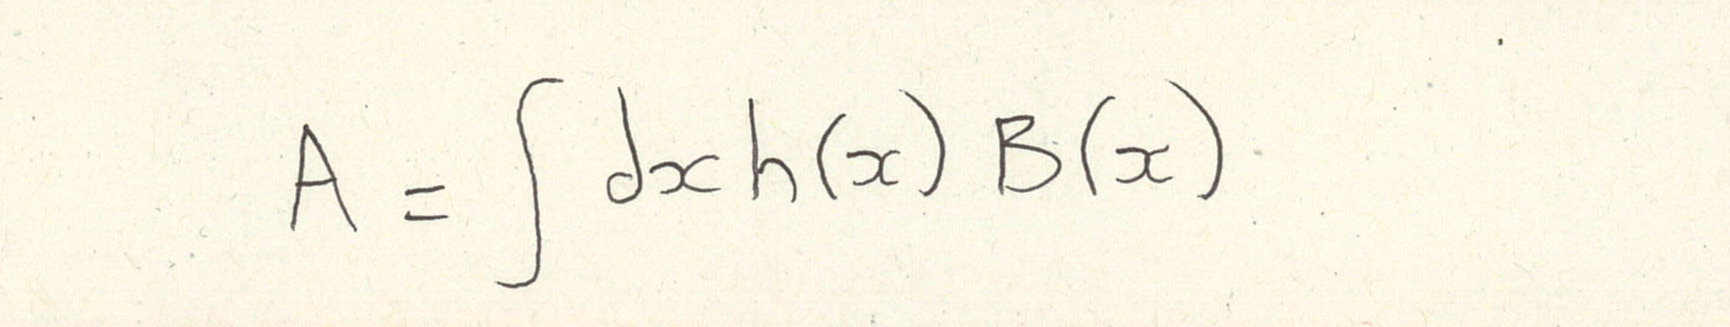 A = ∫ dx h(x) B(x)